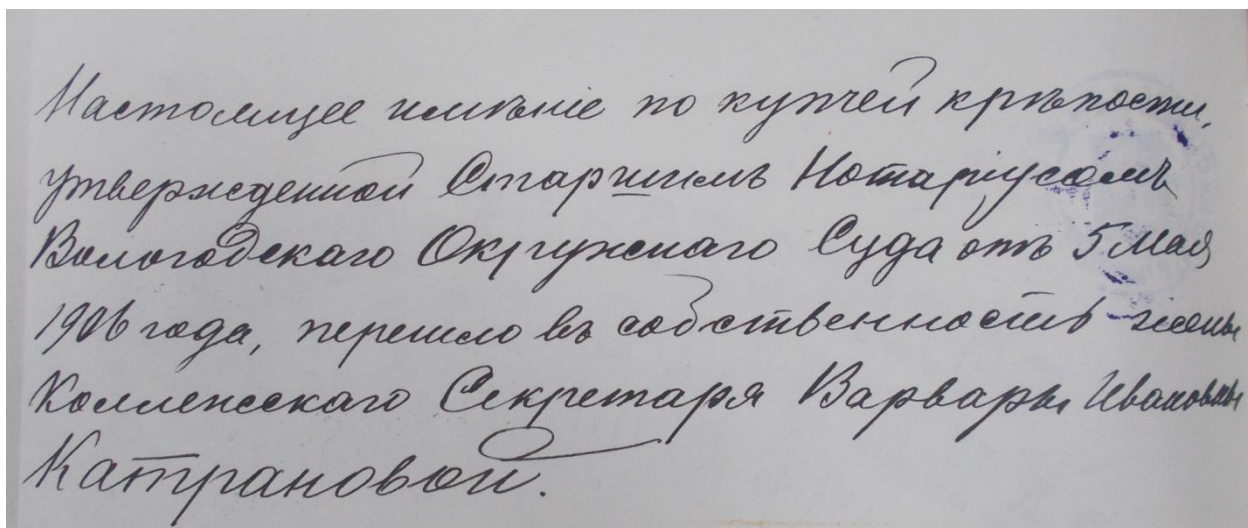 Настоящее имѣніе по купчей крѣпости,
утвержденной Старшимъ Нотаріусомъ
Вологодскаго Окружнаго Суда отъ 5 Мая
1906 года, перешло въ собственность жены
Коллежскаго Секретаря Варвары Ивановны
Катрановой.